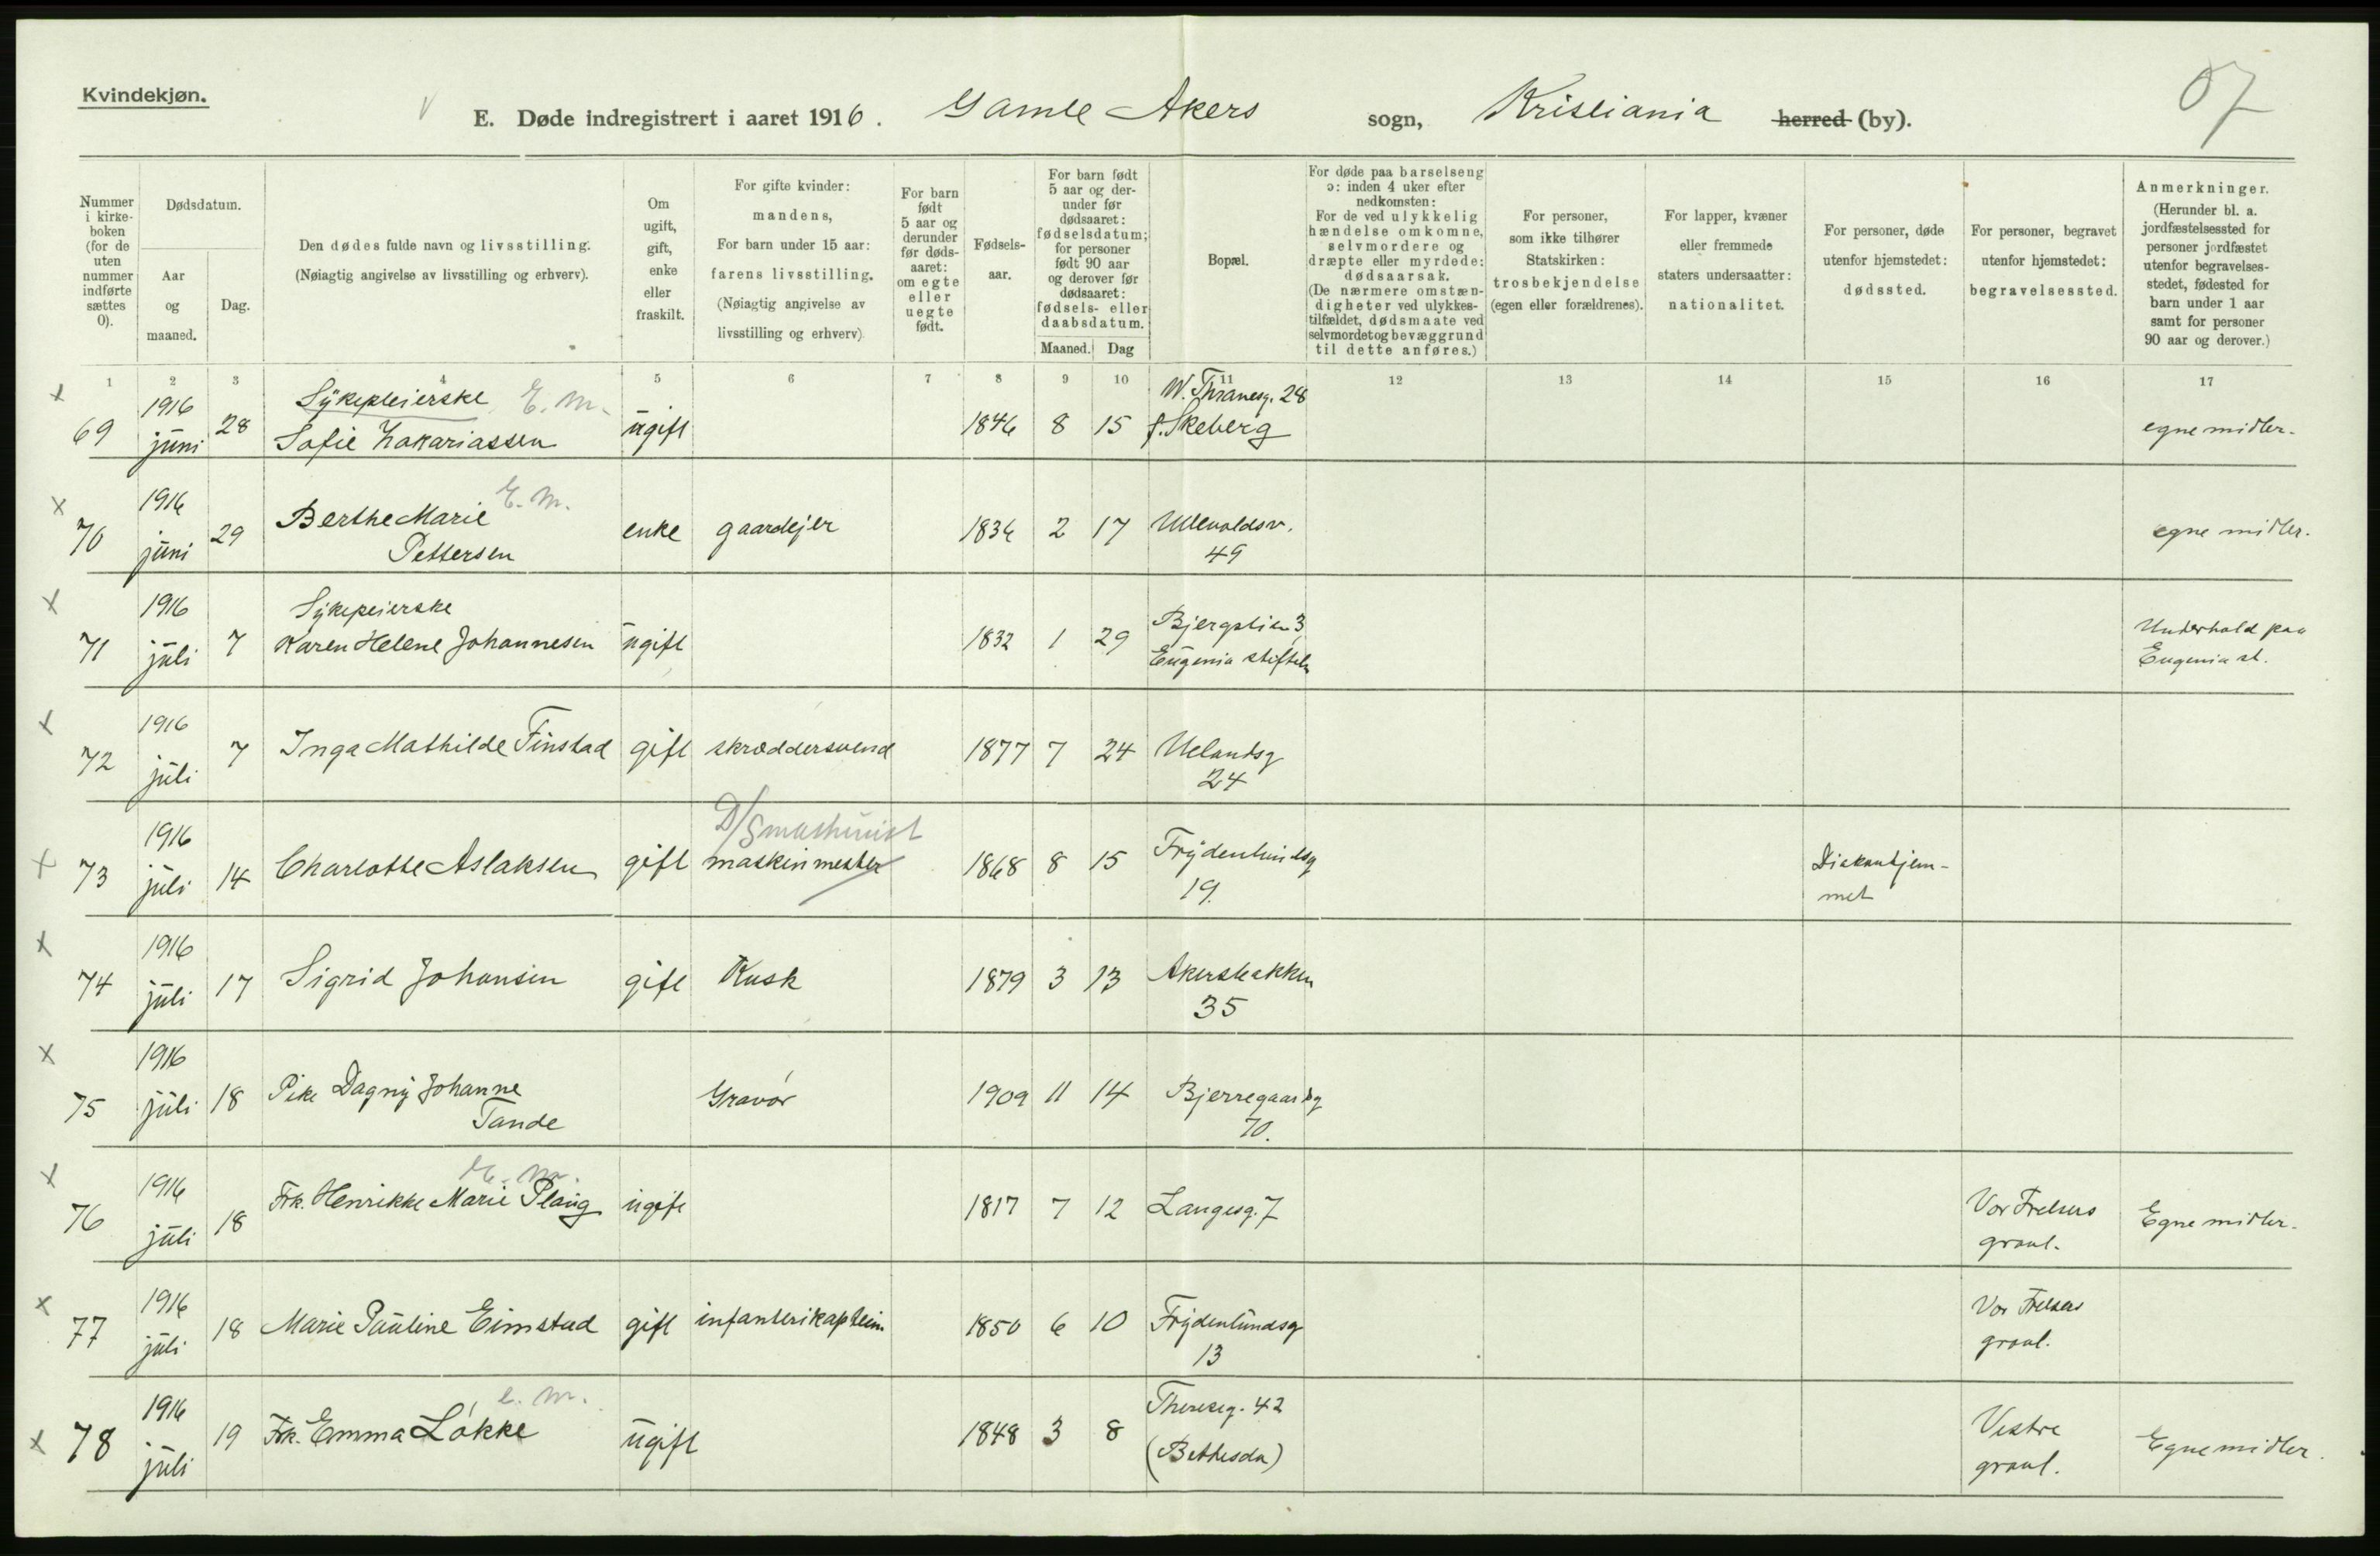 Kvindekjøn.
E. Døde indregistrert i aaret 1916. Gamle Akers sogn, Kristiania herred (by).
07
Nummer i kirke-boken (for de uten nummer indførte sættes 0).
Dødsdatum.
Aar og maaned.
Dag.
Den dødes fulde navn og livsstilling.
(Nøiagtig angivelse av livsstilling og erhverv).
Om ugift, gift, enke eller fraskilt.
For gifte kvinder:
mandens,
For barn under 15 aar:
farens livsstilling.
(Nøiagtig angivelse av
livsstilling og erhverv)
For barn født 5 aar og derunder før døds-aaret: om egte eller uegte født.
Fødsels-aar.
For barn født 5 aar og der-under før dødsaaret: fødselsdatum; for personer født 90 aar og derover før dødsaaret: fødsels- eller daabsdatum.
Maaned. Dag
Bopæl.
For døde paa barselseng
ɔ: inden 4 uker efter
nedkomsten:
For de ved ulykkelig
hændelse omkomne,
selvmordere og
dræpte eller myrdede:
dødsaarsak.
(De nærmere omstæn-
digheter ved ulykkes-
tilfældet, dødsmaate ved
selvmordet og bevæggrund
til dette anføres.)
For personer,
som ikke tilhører
Statskirken:
trosbekjendelse
(egen eller forældrenes).
For lapper, kvæner
eller fremmede
staters undersaatter:
nationalitet.
For personer, døde
utenfor hjemstedet:
dødssted.
For personer, begravet
utenfor hjemstedet:
begravelsessted.
Anmerkninger.
(Herunder bl. a.
jordfæstelsessted for
personer jordfæstet
utenfor begravelses-
stedet, fødested for
barn under 1 aar
samt for personer
90 aar og derover.)
1 2 3 4 5 6 7 8 9 10 11 12 13 14 15 16 17
x 1916 Sykepleierske E. M. W. Thranesg. 28
69 juni 28 Sofie Zakariassen ugift 1846 8 15 f. Skeberg egne midler.
x 1916 Berthe Marie E. M.
70 juni 29 Pettersen enke gaardejer 1836 2 17 Ullevoldsv. 49 egne midler.
x 1916 Sykepeierske Bjergstien 3 Underhold paa
71 juli 7 Karen Helene Johannesen ugift 1832 1 29 Eugenia stiftels Eugenia st.
x 1916
72 juli 7 Inga Mathilde Finstad gift skræddersvend 1877 7 24 Uelandsg 24
x 1916 D/S maskinist
73 juli 14 Charlotte Aslaksen gift maskinmester 1868 8 15 Frydenlundsg 19. Diakonhjem-
met
x 1916
74 juli 17 Sigrid Johansen gift Kusk 1879 3 13 Akersbakken 35
x 1916
75 juli 18 Pike Dagny Johanne
Tande Gravør 1909 11 14 Bjerregaardsg 70.
x 1916 E. M.
76 juli 18 Frk. Henrikke Marie Plaug ugift 1817 7 12 Langesg. 7 Vor Frelsers
gravl. Egne midler.
x 1916
77 juli 18 Marie Pauline Eimstad gift infanterikaptein 1850 6 10 Frydenlundsg 13 Vor Frelsers
gravl.
x 1916 E. M. Theresesg. 42
78 juli 19 Frk. Emma Løkke ugift 1848 3 8 (Bethesda) Vestre
gravl. Egne midler.